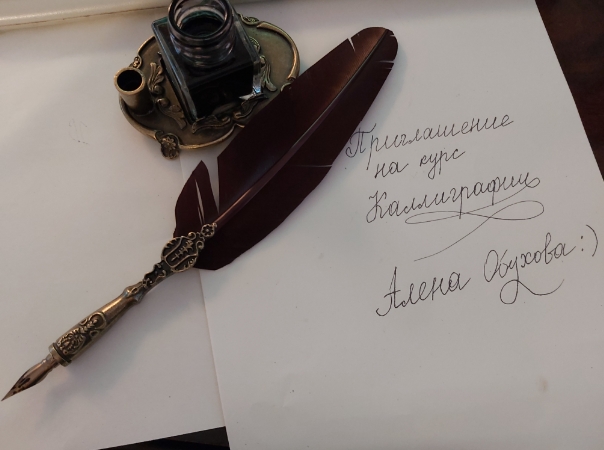 Приглашение
на курс
Каллиграфии
Алена Обухова:)